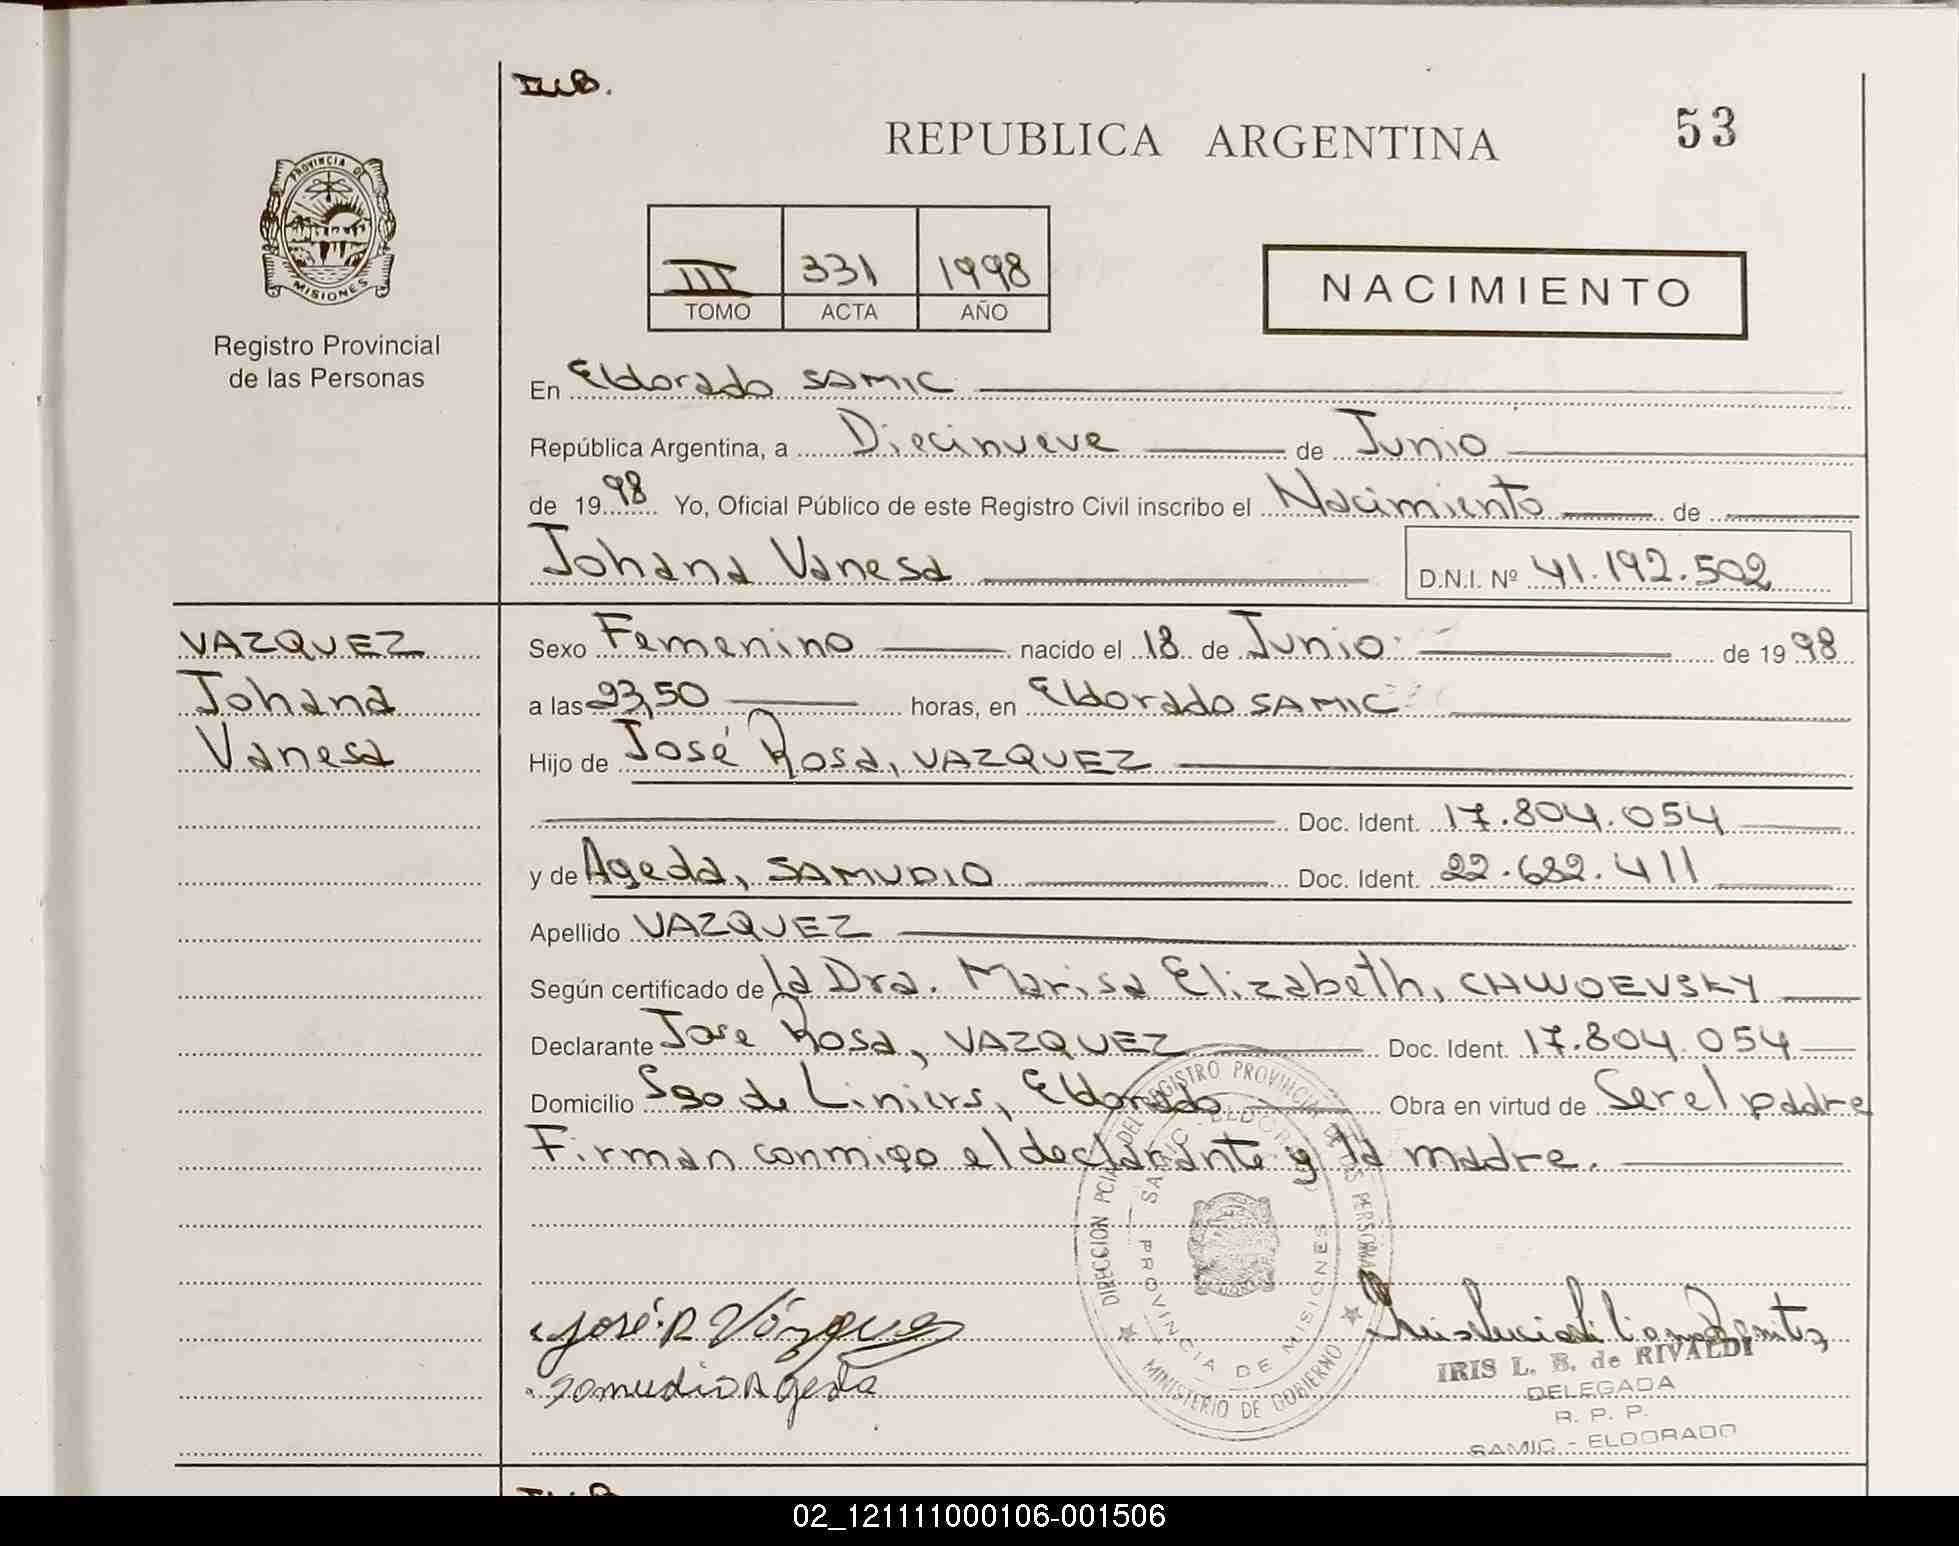 ILB.
REPUBLICA ARGENTINA
53
PROVINCIA DE
MISIONES
Registro Provincial
de las Personas
III 331 1998
TOMO ACTA AÑO
NACIMIENTO
En Eldorado SAMIC
República Argentina, a Diecinueve de Junio
de 1998 Yo, Oficial Público de este Registro Civil inscribo el Nacimiento de
Johana Vanesa D.N.I. Nº 41.192.502
VAZQUEZ
Johana
Vanesa
Sexo Femenino nacido el 18 de Junio de 1998
a las 23,50 horas, en Eldorado SAMIC
Hijo de José Rosa, VAZQUEZ
Doc. Ident. 17.804.054
y de Ageda, SAMUDIO Doc. Ident. 22.682.411
Apellido VAZQUEZ
Según certificado de la Dra. Marisa Elizabeth, CHWOEVSKY
Declarante Jose Rosa, VAZQUEZ Doc. Ident. 17.804.054
Domicilio Sgo de Liniers, Eldorado Obra en virtud de Ser el padre
Firman conmigo el declarante y la madre.
DIRECCION PCIAL DEL REGISTRO PROVINCIAL DE LAS PERSONAS
MINISTERIO DE GOBIERNO
SAMIC - ELDORADO
PROVINCIA DE MISIONES
José R Vázquez
Samudio Ageda
IRIS L. B. de RIVALDI
DELEGADA
R. P. P.
SAMIC - ELDORADO
02_121111000106-001506